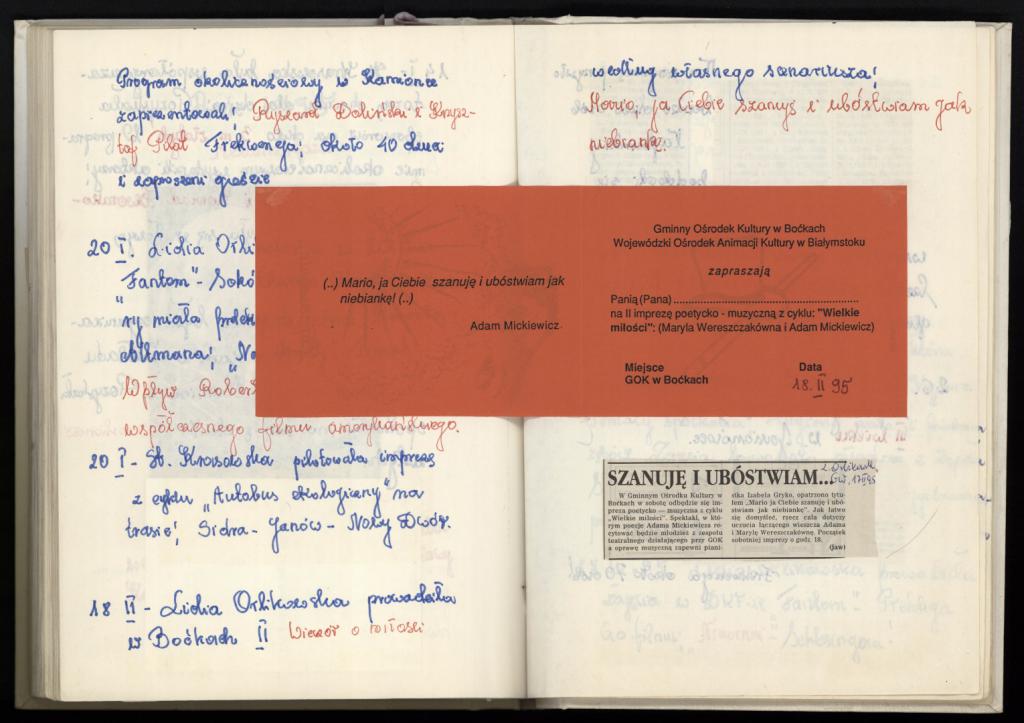 Program okolicznościowy w Kamionce
zaprezentowali: Ryszard Doliński i Krzysz-
tof Pilat Frekwencja: około 40 dzieci
i zaproszeni goście
20 I. Lidia Orli
"Fantom" - Sokó
ry miała prelek
Altmana: „Na
Wpływ Rober
współczesnego filmu amerykańskiego.
20 I - St. Krasowska pilotowała imprezę
z cyklu „Autobus ekologiczny" na
trasie: Sidra - Janów - Nowy Dwór.
18 II - Lidia Orlikowska prowadziła
w Boćkach II Wieczór o miłości
według własnego scenariusza:
Mario, ja Ciebie szanuję i ubóstwiam jak
niebiankę.
(..) Mario, ja Ciebie szanuję i ubóstwiam jak
niebiankę! (..)
Adam Mickiewicz
Gminny Ośrodek Kultury w Boćkach
Wojewódzki Ośrodek Animacji Kultury w Białymstoku
zapraszają
Panią (Pana) ..........................................................
na II imprezę poetycko - muzyczną z cyklu: "Wielkie
miłości": (Maryla Wereszczakówna i Adam Mickiewicz)
Miejsce Data
GOK w Boćkach 18. II 95
SZANUJĘ I UBÓSTWIAM...
L. Orlikowska,
GW, 17 II 95
W Gminnym Ośrodku Kultury w
Boćkach w sobotę odbędzie się im-
preza poetycko — muzyczna z cyklu
„Wielkie miłości". Spektakl, w któ-
rym poezje Adama Mickiewicza re-
cytować będzie młodzież z zespołu
teatralnego działającego przy GOK
a oprawę muzyczną zapewni piani-
stka Izabela Gryko, opatrzono tytu-
łem „Mario ja Ciebie szanuję i ubó-
stwiam jak niebiankę". Jak łatwo
się domyśleć, rzecz cała dotyczy
uczucia łączącego wieszcza Adama
i Marylę Wereszczakównę. Początek
sobotniej imprezy o godz. 18.
(jaw)